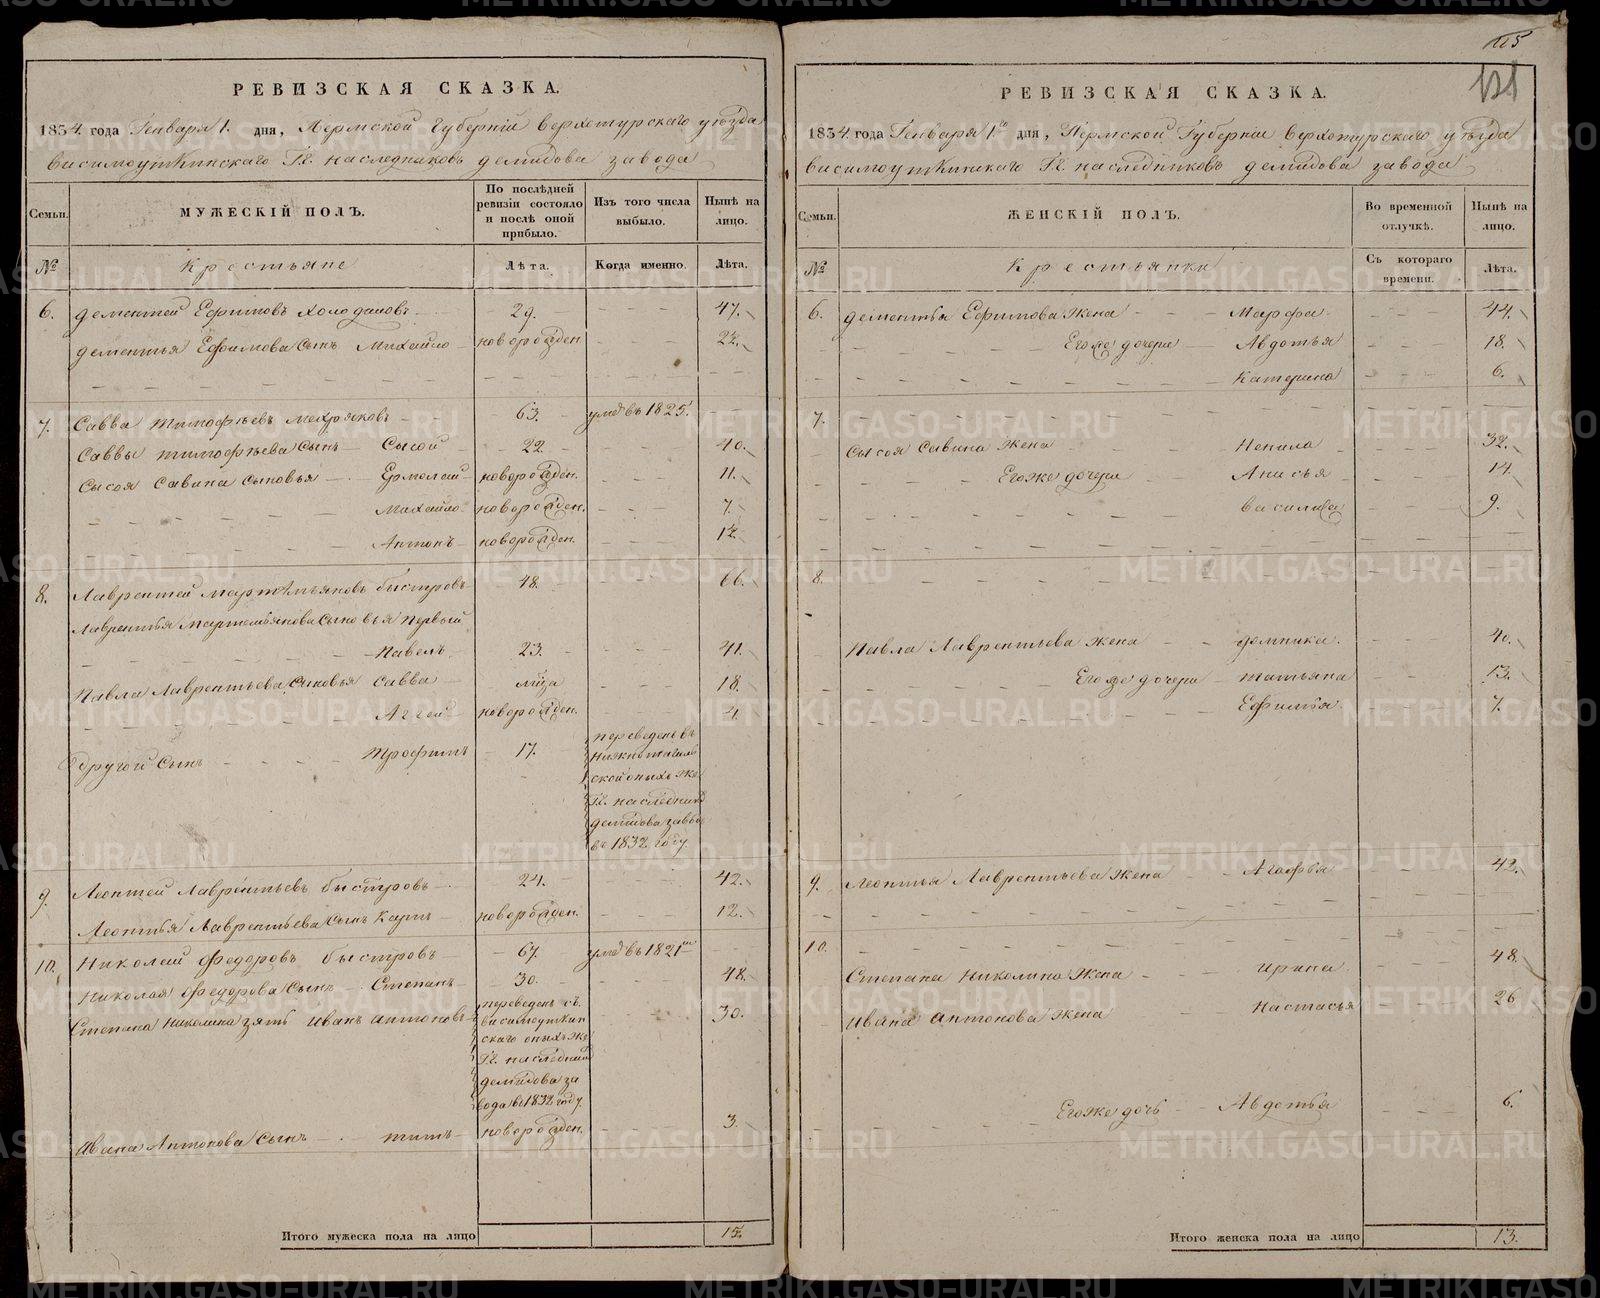 РЕВИЗСКАЯ СКАЗКА.
1834. года Генваря 1. дня, Пермской Губерніи верхотурскаго уѣзда
висимоуткинскаго Гг. наследниковъ демидова завода
Семьи.
МУЖЕСКІЙ ПОЛЪ.
По послѣдней ревизіи состояло и послѣ оной прибыло.
Изъ того числа выбыло.
Нынѣ на лицо.
№
Крестьяне
Лѣта.
Когда именно.
Лѣта.
6. дементей Ефимовъ Холодиловъ 29. 47.
дементья Ефимова Сынъ Михайло новорожден 22.
7. Савва тимофѣевъ 63. умре въ 1825.
Саввы тимофѣева Сынъ Сысой 22. 40.
Сысоя Савина Сыновья Ермолай новорожден. 11.
Михайло новорожден. 7.
Антонъ новорожден. 12
8. Лаврентей Мартемьяновъ быстровъ 48. 66.
Лаврентья Мартемьянова Сыновья первый
Павелъ 23. 41.
Павла Лаврентьева Сыновья Савва 18.
Аггей новорожден. 4.
другой Сынъ Трофимъ 17. переведенъ въ
нижнотагиль
ской оныхъ же
Гг. наследник
демидова заво
въ 1832 году.
9. Леонтей Лаврентьевъ быстровъ 24. 42.
Леонтья Лаврентьева Сынъ Карпъ новорожден. 12.
10. Николай Федоровъ быстровъ 67. умре въ 1821
Николая Федорова Сынъ Степанъ 30. 48.
Степана Николина зять Иванъ антоновъ переведенъ съ 30.
висимоуткин
скаго оныхъ же
Гг. наследник
демидова за
вода въ 1832 году.
Ивана Антонова Сынъ титъ новорожден. 3.
Итого мужеска пола на лицо 15.
115
121
РЕВИЗСКАЯ СКАЗКА.
1834. года Генваря 1го дня, Пермской Губерніи верхотурскаго уѣзда
висимоуткинскаго Гг. наследниковъ демидова завода
Семьи.
ЖЕНСКІЙ ПОЛЪ.
Во временной отлучкѣ.
Нынѣ на лицо.
№
Крестьянки
Съ котораго времени.
Лѣта.
6. дементья Ефимова жена Марфа 44.
Егоже дочери Авдотья 18.
Катерина 6.
7.
Сысоя Савина жена Ненила 32.
Егоже дочери Анисья 14.
василиса 9.
8.
Павла Лаврентьева жена домника 40.
Егоже дочери татьяна 13.
Ефимья 7.
9. Леонтья Лаврентьева жена Агафья 42.
10.
Степана Николина жена Ирина 48.
Ивана антонова жена Настасья 26
Егоже дочь Авдотья 6.
Итого женска пола на лицо 13.
METRIKI.GASO-URAL.RU